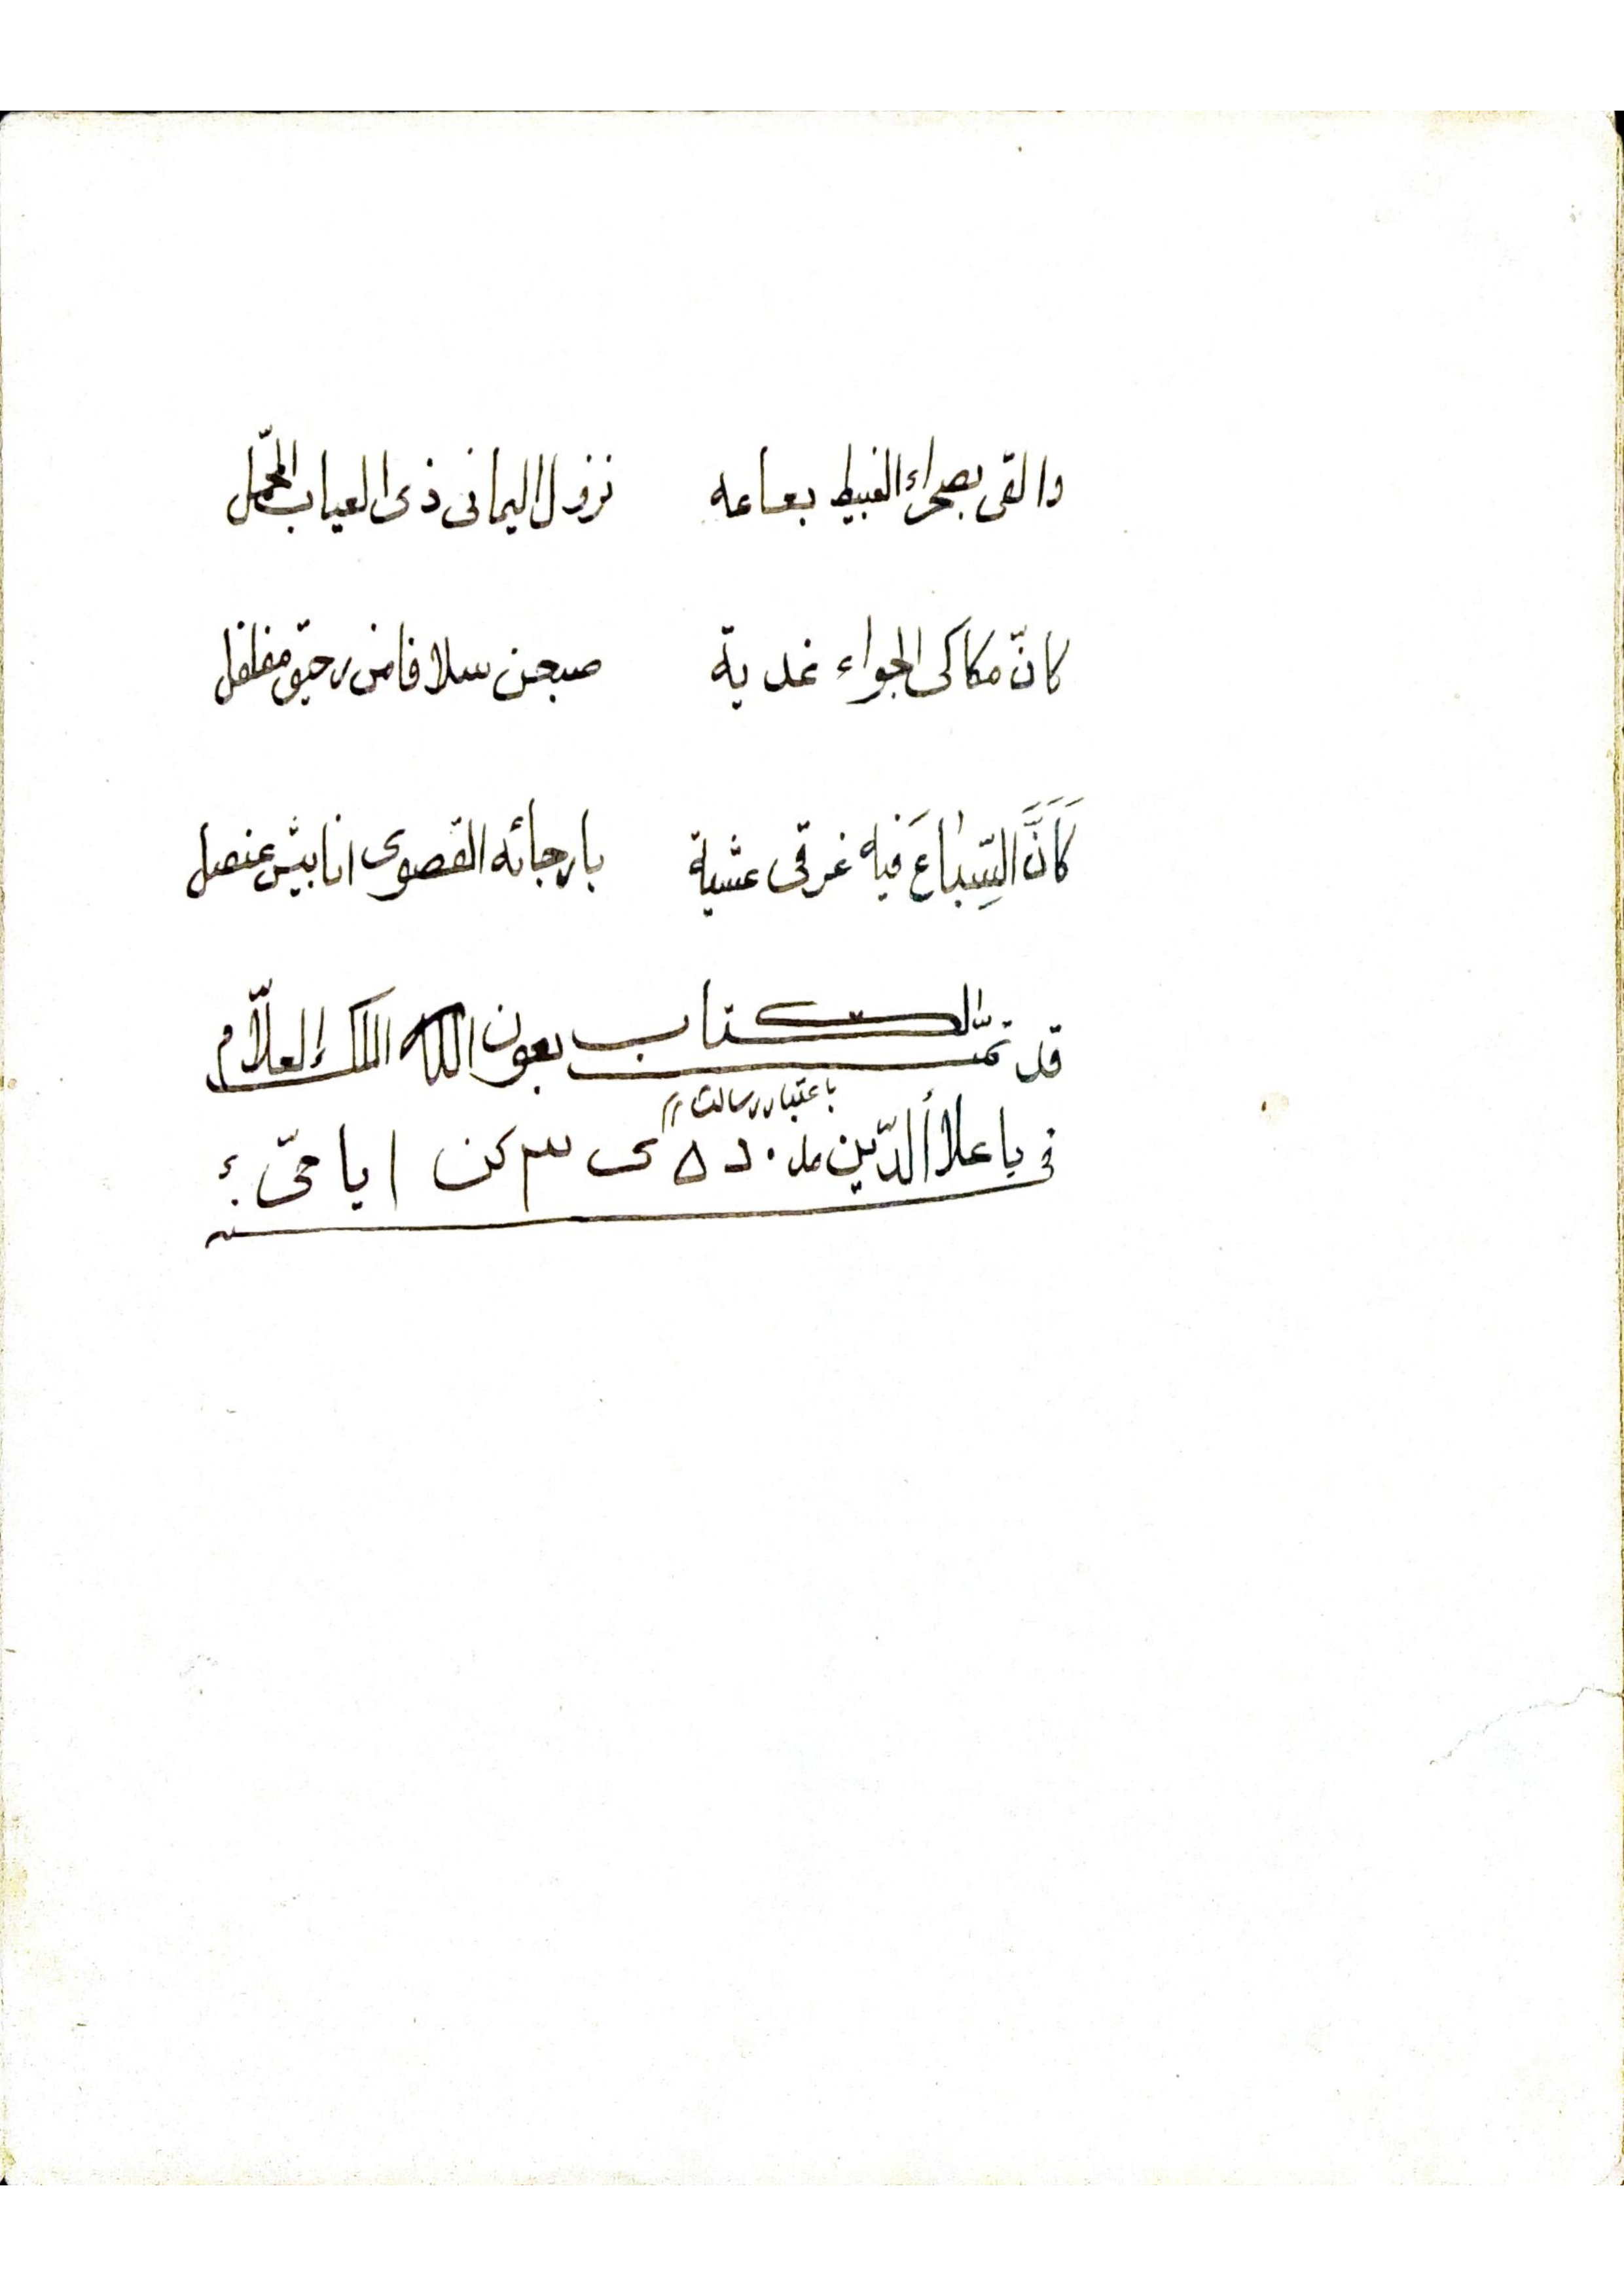 والقى بصحراء الغبيط بعاعه نزول اليمانى ذى العياب المحمّل
كانّ مكاكى الجواء غدية صبحن سلافا من رحيق مفلفل
كَاَنَّ السِّبٰاعَ فيه غرقى عشية بارجائه القصوى انابيش عنصل
قد تمّت الكتاب بعون الله الملك العلّام
باعتبار رسالت
فى يا علاأ الدّين كن ايا حىّ